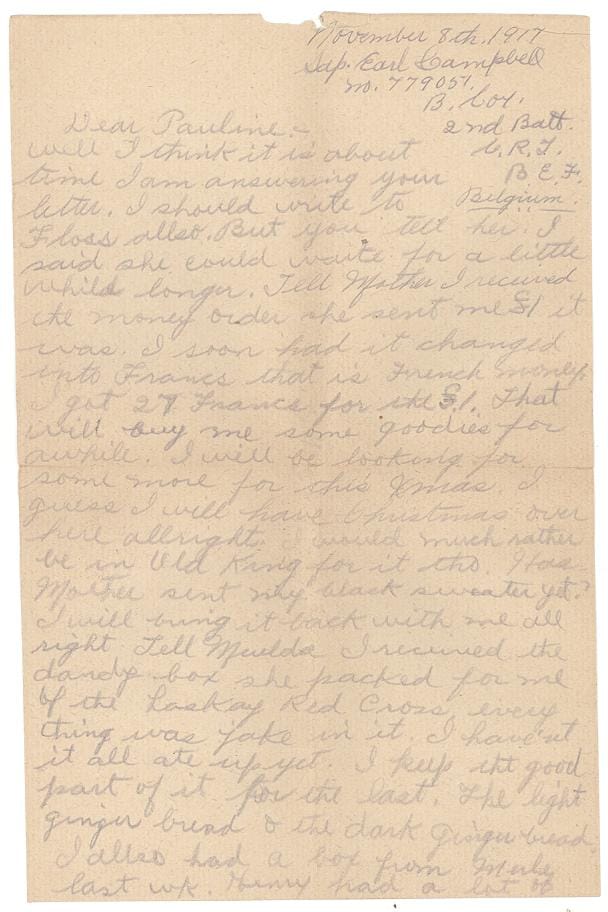 November 8th. 1917
Sap. Earl Campbell
no. 779051.
B. Coy.
2nd Batt.
C. R. T.
B E. F.
Belgium.
Dear Pauline:-
Well I think it is about
time I am answering your
letter. I should write to
Floss allso. But you tell her I
said she could waite for a little
while longer. Tell Mother I received
the money order she sent me £1 it
was. I soon had it changed
into Francs that is French money.
I got 27 Francs for the £1. That
will buy me some goodies for
awhile. I will be looking for
some more for this Xmas. I
guess I will have Christmas over
here allright. I would much rather
be in Old King for it tho. Has
Mother sent my black sweater yet?
I will bring it back with me all
right. Tell Mulda I received the
dandy box she packed for me
of the Laskay Red Cross, every
thing was jake in it. I have'nt
it all ate up yet. I keep the good
part of it for the last. The light
ginger bread & the dark ginger bread.
I allso had a box from Merle
last wk. Henry had a lot of